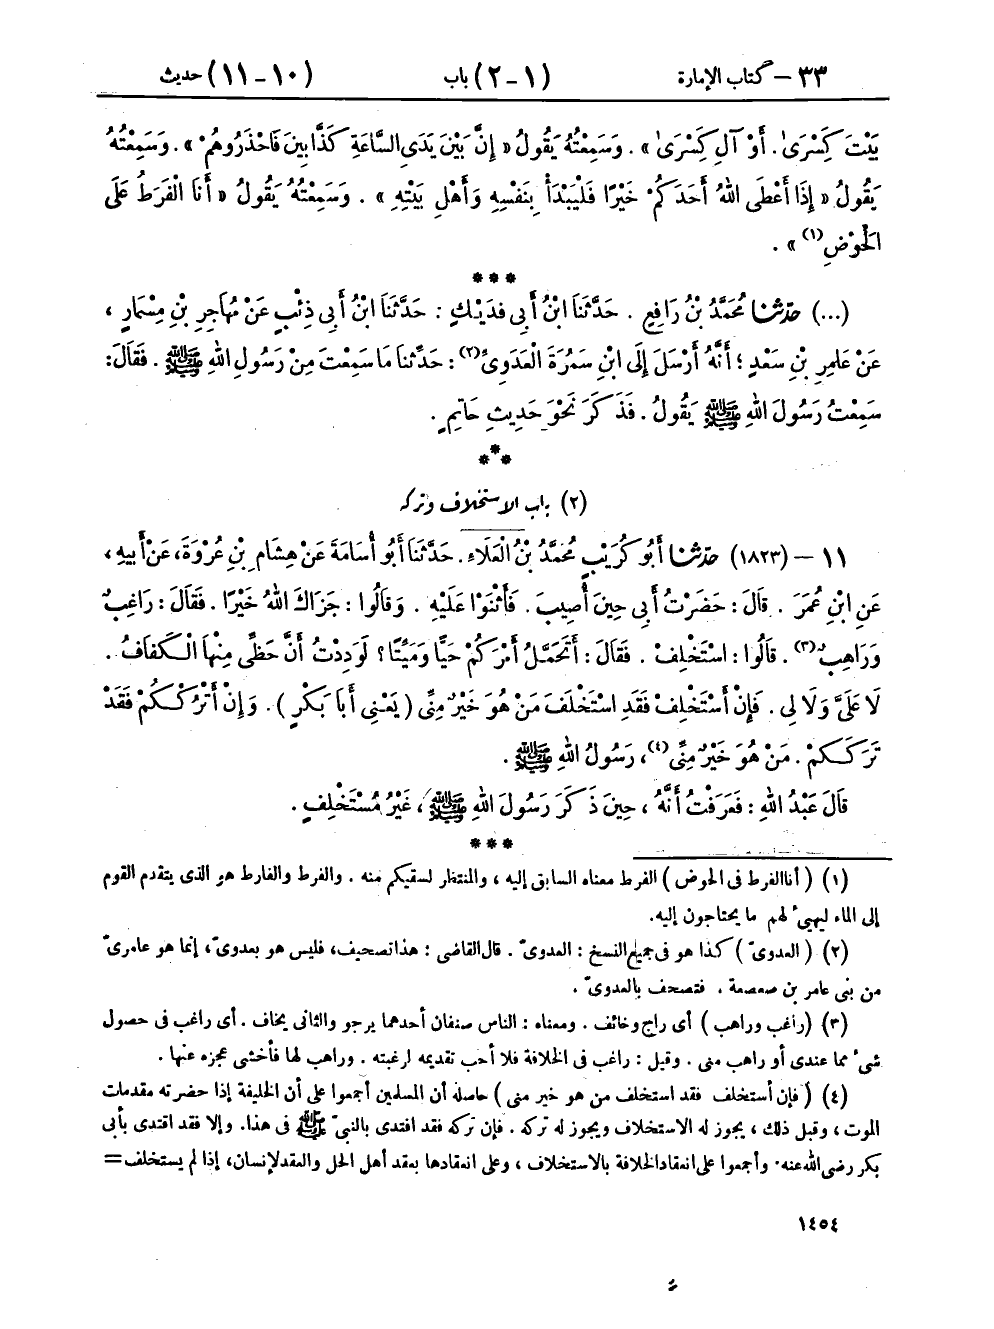 ٣٣ – كتاب الإمارة (١-٢) باب (١٠-١١) حديث
بَيْتَ كِسْرَىٰ. أَوْ آلِ كِسْرَىٰ » . وَسَمِعْتُهُ يَقُولُ « إِنَّ بَيْنَ يَدَىِ السَّاعَةِ كَذَّابِينَ فَاحْذَرُوهُمْ » . وَسَمِعْتُهُ
يَقُولُ « إِذَا أَعْطَى اللهُ أَحَدَكُمْ خَيْرًا فَلْيَبْدَأْ بِنَفْسِهِ وَأَهْلِ بَيْتِهِ » . وَسَمِعْتُهُ يَقُولُ « أَنَا الْفَرَطُ عَلَى
الْحَوْضِ (١) » .
***
(...) حَدَّثَنَا مُحَمَّدُ بْنُ رَافِعٍ . حَدَّثَنَا ابْنُ أَبِى فُدَيْكٍ : حَدَّثَنَا ابْنُ أَبِى ذِئْبٍ عَنْ مُهَاجِرِ بْنِ مِسْمَارٍ ،
عَنْ عَامِرِ بْنِ سَعْدٍ ؛ أَنَّهُ أَرْسَلَ إِلَى ابْنِ سَمُرَةَ الْعَدَوِىِّ (٢) : حَدِّثْنَا مَا سَمِعْتَ مِنْ رَسُولِ اللهِ ﷺ . فَقَالَ:
سَمِعْتُ رَسُولَ اللهِ ﷺ يَقُولُ . فَذَكَرَ نَحْوَ حَدِيثِ حَاتِمٍ .
***
(٢) باب الاستخلاف وتركه
١١ – (١٨٢٣) حَدَّثَنَا أَبُو كُرَيْبٍ مُحَمَّدُ بْنُ الْعَلَاءِ . حَدَّثَنَا أَبُو أُسَامَةَ عَنْ هِشَامِ بْنِ عُرْوَةَ، عَنْ أَبِيهِ ،
عَنِ ابْنِ عُمَرَ . قَالَ : حَضَرْتُ أَبِى حِينَ أُصِيبَ . فَأَثْنَوْا عَلَيْهِ . وَقَالُوا : جَزَاكَ اللهُ خَيْرًا . فَقَالَ : رَاغِبٌ
وَرَاهِبٌ (٣) . قَالُوا : اسْتَخْلِفْ . فَقَالَ : أَتَحَمَّلُ أَمْرَكُمْ حَيًّا وَمَيِّتًا ؟ لَوَدِدْتُ أَنَّ حَظِّى مِنْهَا الْكَفَافُ .
لَا عَلَىَّ وَلَا لِى . فَإِنْ أَسْتَخْلِفْ فَقَدِ اسْتَخْلَفَ مَنْ هُوَ خَيْرٌ مِنِّى ( يَعْنِى أَبَا بَكْرٍ ) . وَإِنْ أَتْرُكْكُمْ فَقَدْ
تَرَكَكُمْ . مَنْ هُوَ خَيْرٌ مِنِّى (٤) ، رَسُولُ اللهِ ﷺ .
قَالَ عَبْدُ اللهِ : فَعَرَفْتُ أَنَّهُ ، حِينَ ذَكَرَ رَسُولَ اللهِ ﷺ ، غَيْرُ مُسْتَخْلِفٍ .
***
(١) ( أنا الفرط فى الحوض ) الفرط معناه السابق إليه ، والمنتظر لسقيكم منه . والفرط والفارط هو الذى يتقدم القوم
إلى الماء ليهيئ لهم ما يحتاجون إليه.
(٢) ( العدوىّ ) كذا هو فى جميع النسخ : العدوىّ . قال القاضى : هذا تصحيف، فليس هو بعدوىّ ، إنما هو عامرىّ
من بنى عامر بن صعصعة . فتصحف بالعدوىّ .
(٣) (راغب وراهب ) أى راج وخائف . ومعناه : الناس صنفان أحدهما يرجو والثانى يخاف . أى راغب فى حصول
شئ مما عندى أو راهب منى . وقيل : راغب فى الخلافة فلا أحب تقديمه لرغبته . وراهب لها فأخشى عجزه عنها .
(٤) ( فإن أستخلف فقد استخلف من هو خير منى ) حاصله أن المسلمين أجمعوا على أن الخليفة إذا حضرته مقدمات
الموت ، وقبل ذلك ، يجوز له الاستخلاف ويجوز له تركه . فإن تركه فقد اقتدى بالنبىّ ﷺ فى هذا. وإلا فقد اقتدى بأبى
بكر رضى الله عنه. وأجمعوا على انعقاد الخلافة بالاستخلاف ، وعلى انعقادها بعقد أهل الحل والعقد لإنسان، إذا لم يستخلف =
١٤٥٤